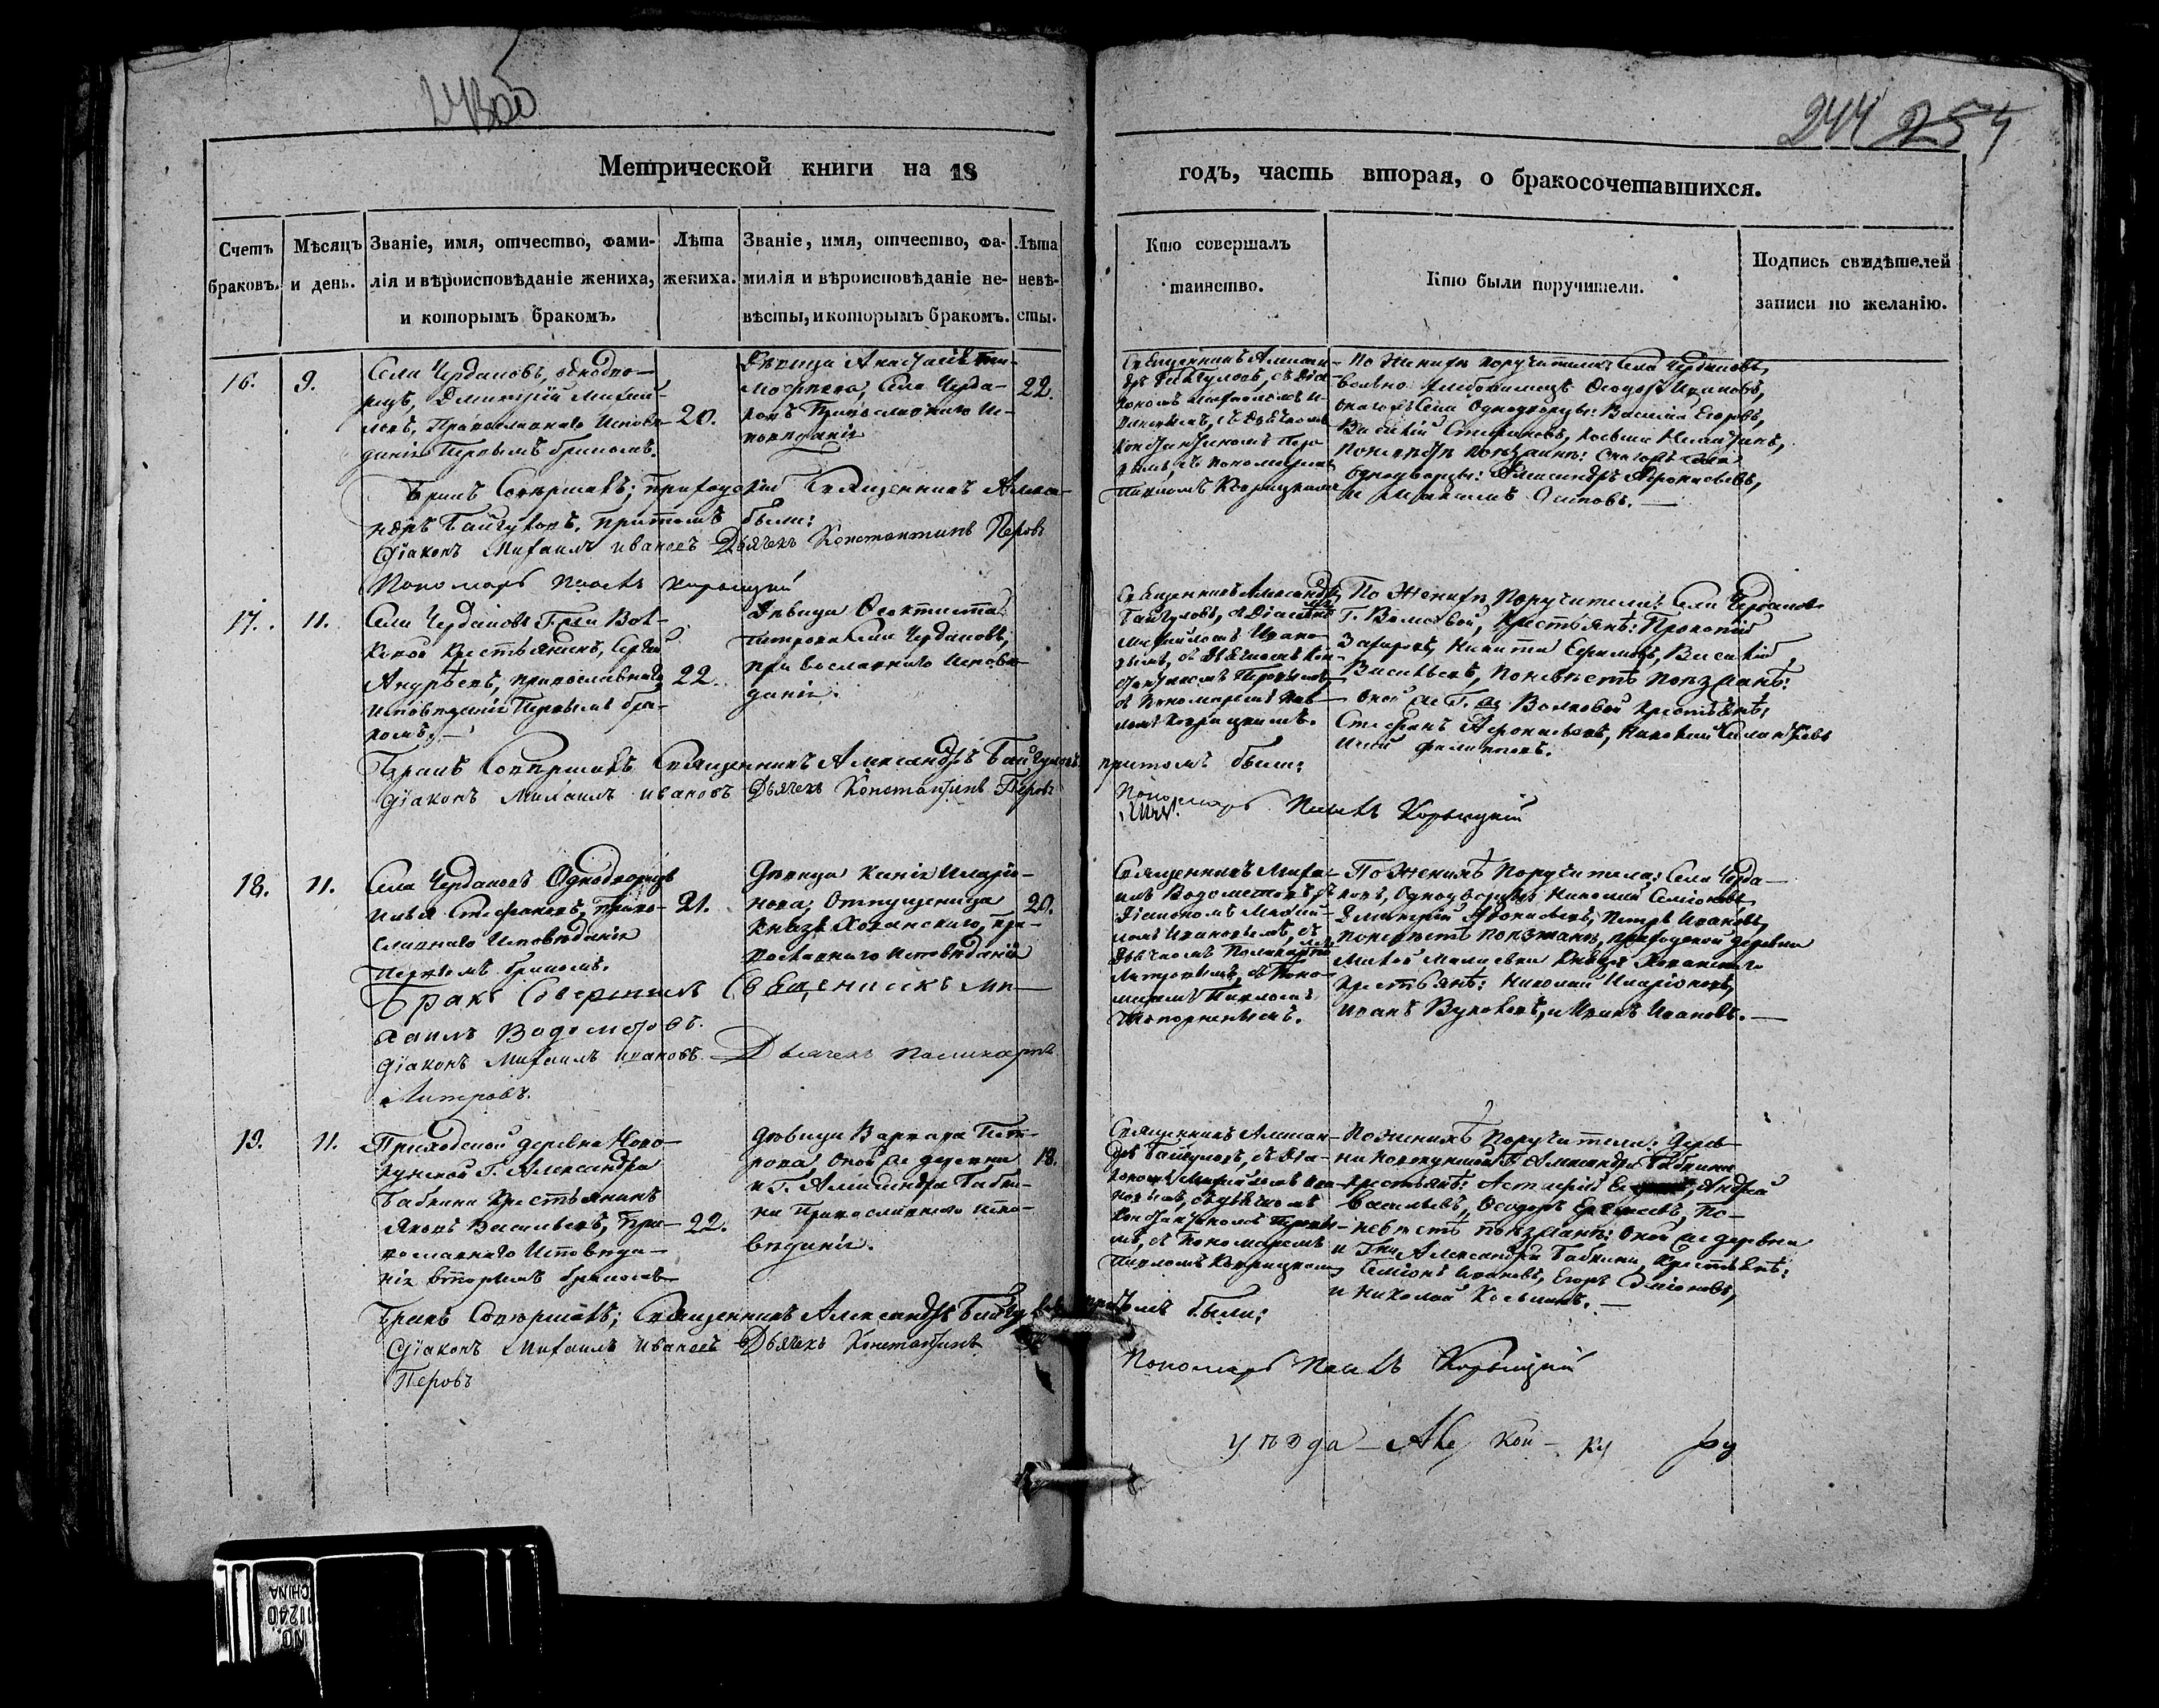 244 254
Метрической книги на 18
годъ, часть вторая, о бракосочетавшихся.
Счетъ браковъ.
Мѣсяцъ и день.
Званіе, имя, отчество, фами-
лія и вѣроисповѣданіе жениха,
и которымъ бракомъ.
Лѣта
жениха.
Званіе, имя, отчество, фа-
милія и вѣроисповѣданіе не-
вѣсты, и которымъ бракомъ.
Лѣта
невѣ-
сты.
Кто совершалъ
таинство.
Кто были поручители.
Подпись свидѣтелей
записи по желанію.
16.
9.
Села Чердаковъ, однодво-
рецъ, Димитрій Михай-
ловъ, Православнаго Исповѣ-
данія Первымъ бракомъ.
20.
Дѣвица Анастасія Ти-
моѳеева, Села Черда-
ковъ Православнаго И-
повѣданія
22.
Священникъ Алексан-
дръ Байгуловъ, съ Діа-
кономъ Михаиломъ И-
вановымъ, съ Дьячкомъ
Константиномъ Перо-
вымъ, съ Пономаремъ
Павломъ
По Женихѣ поручители: Села Чердаковъ,
Ѳеодоръ Ивановъ,
онагожъ Села Однодворцы: Василій Егоровъ,
Василій Стефановъ,
По невѣстѣ поѣзжане: онагожъ села
однодворцы: Александръ Аѳонасьевъ,
и Осиповъ.
Бракъ Совершалъ; приходскій Священникъ Алекса-
ндръ Байгуловъ. притомъ были:
Діаконъ Михаилъ Ивановъ Дьячекъ Константинъ Перовъ
Пономарь Павелъ
17.
11.
Села Чердаковъ Г-жи Вол-
ковой Крестьянинъ, Сергѣй
Андрѣевъ, православнаго
исповѣданія Первымъ бра-
комъ.
22.
Дѣвица Ѳеоктиста
Петрова Села Чердаковъ,
православнаго Исповѣ-
данія.
Священникъ Александръ
Байгуловъ, съ Діакономъ
Михаиломъ Ивано-
вымъ, съ Дьячкомъ Кон-
стантиномъ Перовымъ,
съ Пономаремъ Пав-
ломъ
По Женихѣ Поручители: Села Чердаковъ
Г. Волковой, Крестьянѣ: Прокопій
Захаровъ, Никита Ефимовъ, Василій
Васильевъ, По невѣстѣ поѣзжанѣ:
оной же Г. Волковой крестьянѣ:
Стефанъ Аѳонасьевъ,
Филиповъ.
Бракъ Совершалъ Священникъ Александръ Байгуловъ притомъ были:
Діаконъ Михаилъ Ивановъ Дьячекъ Константинъ Перовъ
Пономарь Павелъ
18.
11.
Села Чердаковъ Однодворецъ
Илья Стефановъ, право-
славнаго Исповѣданія
первымъ бракомъ.
21.
Дѣвица Ксенія Иларіо-
нова, Отпущеница
Князя Хованскаго, пра-
вославнаго Исповѣданія
20.
Священникъ Миха-
илъ Водометовъ, съ
Діакономъ Михаи-
ломъ Ивановымъ, съ
Дьячкомъ Поликарпомъ
съ Поно-
маремъ Павломъ
По Женихѣ Поручители: Села Черда-
ковъ, Однодворцы: Николай Семіоновъ,
Димитрій Аѳонасьевъ, Петръ Ивановъ,
по невѣстѣ поѣзжанѣ, приходской деревни
Малой Князя Хованскаго
Крестьянѣ: Николай Иларіоновъ,
Иванъ Вуколовъ, и Ивановъ.
Бракъ Совершилъ Священникъ Ми-
хаилъ Водометовъ.
Діаконъ Михаилъ Ивановъ. Дьячекъ Поликарпъ
19.
11.
Приходской деревни Ново-
Г. Александра
Бабкина Крестьянинъ
Яковъ Васильевъ, Пра-
вославнаго Исповѣда-
нія вторымъ бракомъ
22.
Дѣвица Варвара Пет-
рова, Оной же деревни
и Г. Александра Бабки-
на Православнаго Испо-
вѣданія.
18.
Священникъ Алексан-
дръ Байгуловъ, съ Діа-
кономъ Михаиломъ Ива-
новымъ, съ Дьячкомъ
Константиномъ Перовы-
мъ, съ Пономаремъ
Павломъ
По женихѣ Поручители: Дерев-
ни Г. Александра Бабкина
крестьянѣ: Андрей
Васильевъ, Ѳеодоръ По-
невѣстѣ поѣзжанѣ: Оной же деревни
и Г-на Александра Бабкина, Крестьянѣ:
Семіонъ Ивановъ, Егоръ Семіоновъ,
и Николай
Бракъ Совершалъ; Священникъ Александръ Байгуловъ притомъ были:
Діаконъ Михаилъ Ивановъ Дьячекъ Константинъ
Перовъ
Пономарь Павелъ
уѣзда
NO.
11240
CHINA